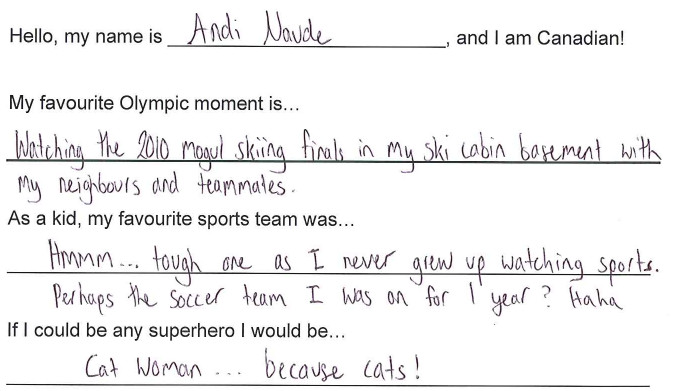 Hello, my name is Andi Naude, and I am Canadian!
My favourite Olympic moment is...
Watching the 2010 mogul skiing finals in my ski cabin basement with
my neighbours and teammates.
As a kid, my favourite sports team was...
Hmmm... tough one as I never grew up watching sports.
Perhaps the soccer team I was on for 1 year? Haha
If I could be any superhero I would be...
Cat Woman ... because cats!